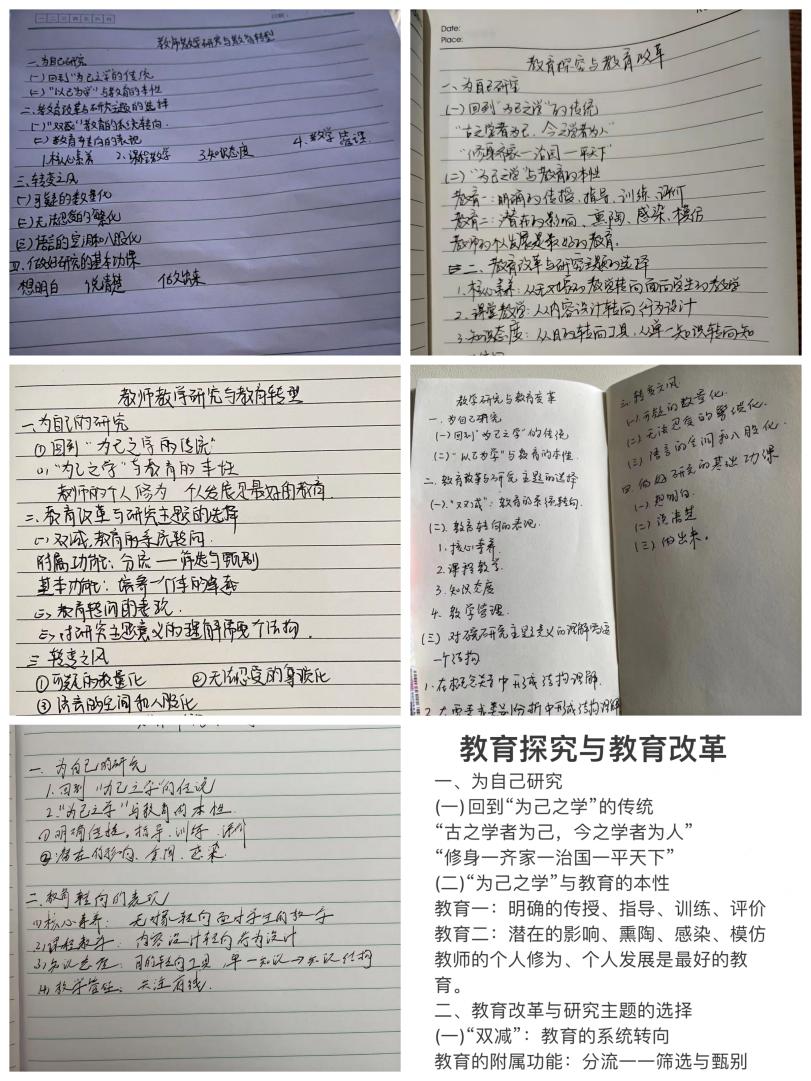 教师教学研究与教育转型
一、为自己研究
(一)回到“为己之学”的传统
(二)“以己为学”与教育的本性
二、教育改革与研究主题的选择
(一)“双减”教育的系统转向.
(二)教育方转向的表现
1.核心素养 2.课程教学 3.知识态度 4.教学管理.
三、转变文风
(一)可疑的数量化
(二)无法忍受的繁化
(三)语言的空洞和八股化
四.做好研究的基本功课
想明白 说清楚 做出来
Date:
Place:
教育探究与教育改革
一、为自己研究
(一)回到“为己之学”的传统
“古之学者为己,今之学者为人”
“修身齐家一治国一平天下”
(二)“为己之学”与教育的本性
教育一:明确的传授、指导、训练、评价
教育二:潜在的影响、熏陶、感染、模仿
教师的个人发展是最好的教育。
二、教育改革与研究主题的选择
1.核心素养:从无对象的教学转向面向学生的教学
2.课堂教学:从内容设计转向行为设计
3.知识态度:从目的转向工具,从单一知识转向知
教师教学研究与教育转型
一.为自己的研究
①回到“为己之学的传统”
(二)“为己之学”与教育的本性
教师的个人修为 个人发展是最好的教育
二.教育改革与研究主题的选择
(一)双减.教育的系统转向.
附属功能:分流——筛选与甄别
基本功能:培养一个
(二)教育转向的表现.
(三)对研究主题意义的理解需要个结构.
三 转变文风
①可疑的数量化 ②无法忍受的繁琐化
③语言的空洞和八股化
教学研究与教育变革
一.为自己研究
(一)回到“为己之学”的传统
(二)“以己为学”与教育的本性.
二.教育改革与研究主题的选择
(一).“双减”:教育的系统转向.
(二).教育转向的表现.
1.核心素养.
2.课程教学.
3.知识态度
4.教学管理.
(三)对研究主题意义的理解需要
一个结构
1.在概念关系中形成结构理解.
2.在要素类别分析中形成结构理解
三.转变文风.
(一).可疑的数量化.
(二).无法忍受的繁琐化.
(三)语言的空洞和八股化.
四.做好研究的基础功课
(一).想明白.
(二).说清楚
(三).做出来.
一.为自己的研究
1.回到“为己之学”的传统
2.“为己之学”与教育的本性
①明确传授.指导.训练.评价
②潜在的影响.熏陶.感染.
二.教育转向的表现
(1)核心素养:无对象转向面对学生的教学
(2)课程教学:内容设计转向行为设计
(3)知识态度:目的转向工具,单一知识→知识结构
(4)教学管理:关注底线.
教育探究与教育改革
一、为自己研究
(一)回到“为己之学”的传统
“古之学者为己，今之学者为人”
“修身一齐家一治国一平天下”
(二)“为己之学”与教育的本性
教育一：明确的传授、指导、训练、评价
教育二：潜在的影响、熏陶、感染、模仿
教师的个人修为、个人发展是最好的教
育。
二、教育改革与研究主题的选择
(一)“双减”：教育的系统转向
教育的附属功能：分流一一筛选与甄别